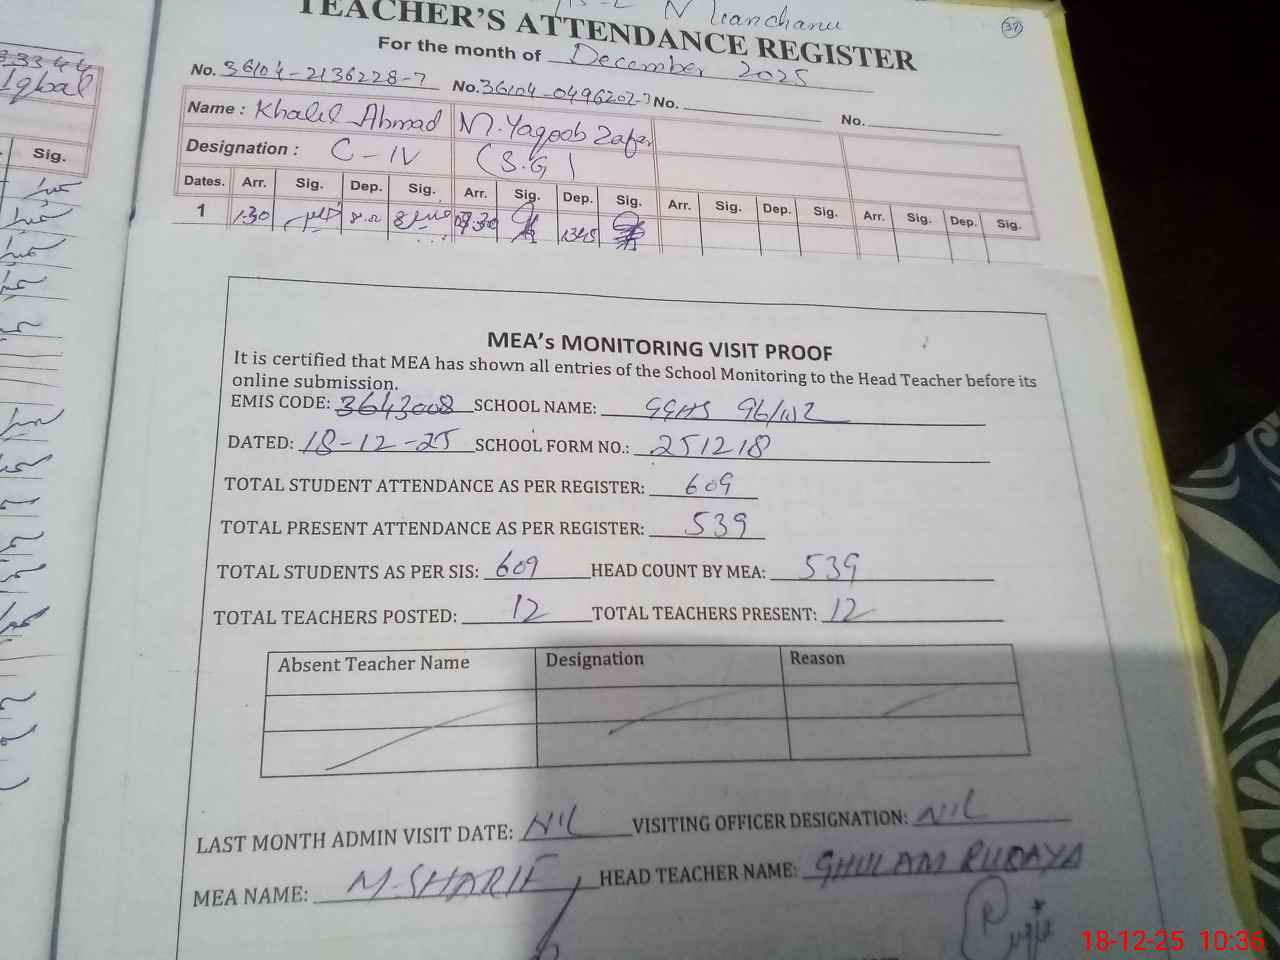 TEACHER'S ATTENDANCE REGISTER
37
For the month of December 2025
No. 36104-2136228-7 No. 36104-0496202-3 No. No.
Name : Khalil Ahmad M. Yaqoob Zafer
Designation : C-IV (S.G)
Dates. Arr. Sig. Dep. Sig. Arr. Sig. Dep. Sig. Arr. Sig. Dep. Sig. Arr. Sig. Dep. Sig.
1 1345
Iqbal
Sig.
MEA's MONITORING VISIT PROOF
It is certified that MEA has shown all entries of the School Monitoring to the Head Teacher before its
online submission.
EMIS CODE: 3643008 SCHOOL NAME: GGHS 96/W2
DATED: 18-12-25 SCHOOL FORM NO.: 251218
TOTAL STUDENT ATTENDANCE AS PER REGISTER: 609
TOTAL PRESENT ATTENDANCE AS PER REGISTER: 539
TOTAL STUDENTS AS PER SIS: 609 HEAD COUNT BY MEA: 539
TOTAL TEACHERS POSTED: 12 TOTAL TEACHERS PRESENT: 12
Absent Teacher Name Designation Reason
LAST MONTH ADMIN VISIT DATE: NIL VISITING OFFICER DESIGNATION: NIL
MEA NAME: M. SHARIF HEAD TEACHER NAME: GHULAM RUQAYA
18-12-25 10:36